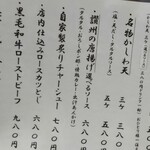 ・名物かしわ天
三ヶ 三八〇
五ヶ 五八〇
・讃州の唐揚げ選べるソース
六八〇
・自家製炙りチャーシュー
七八〇
・店内仕込みロースカツとじ
八八〇円
・黒毛和牛ローストビーフ
九八〇円